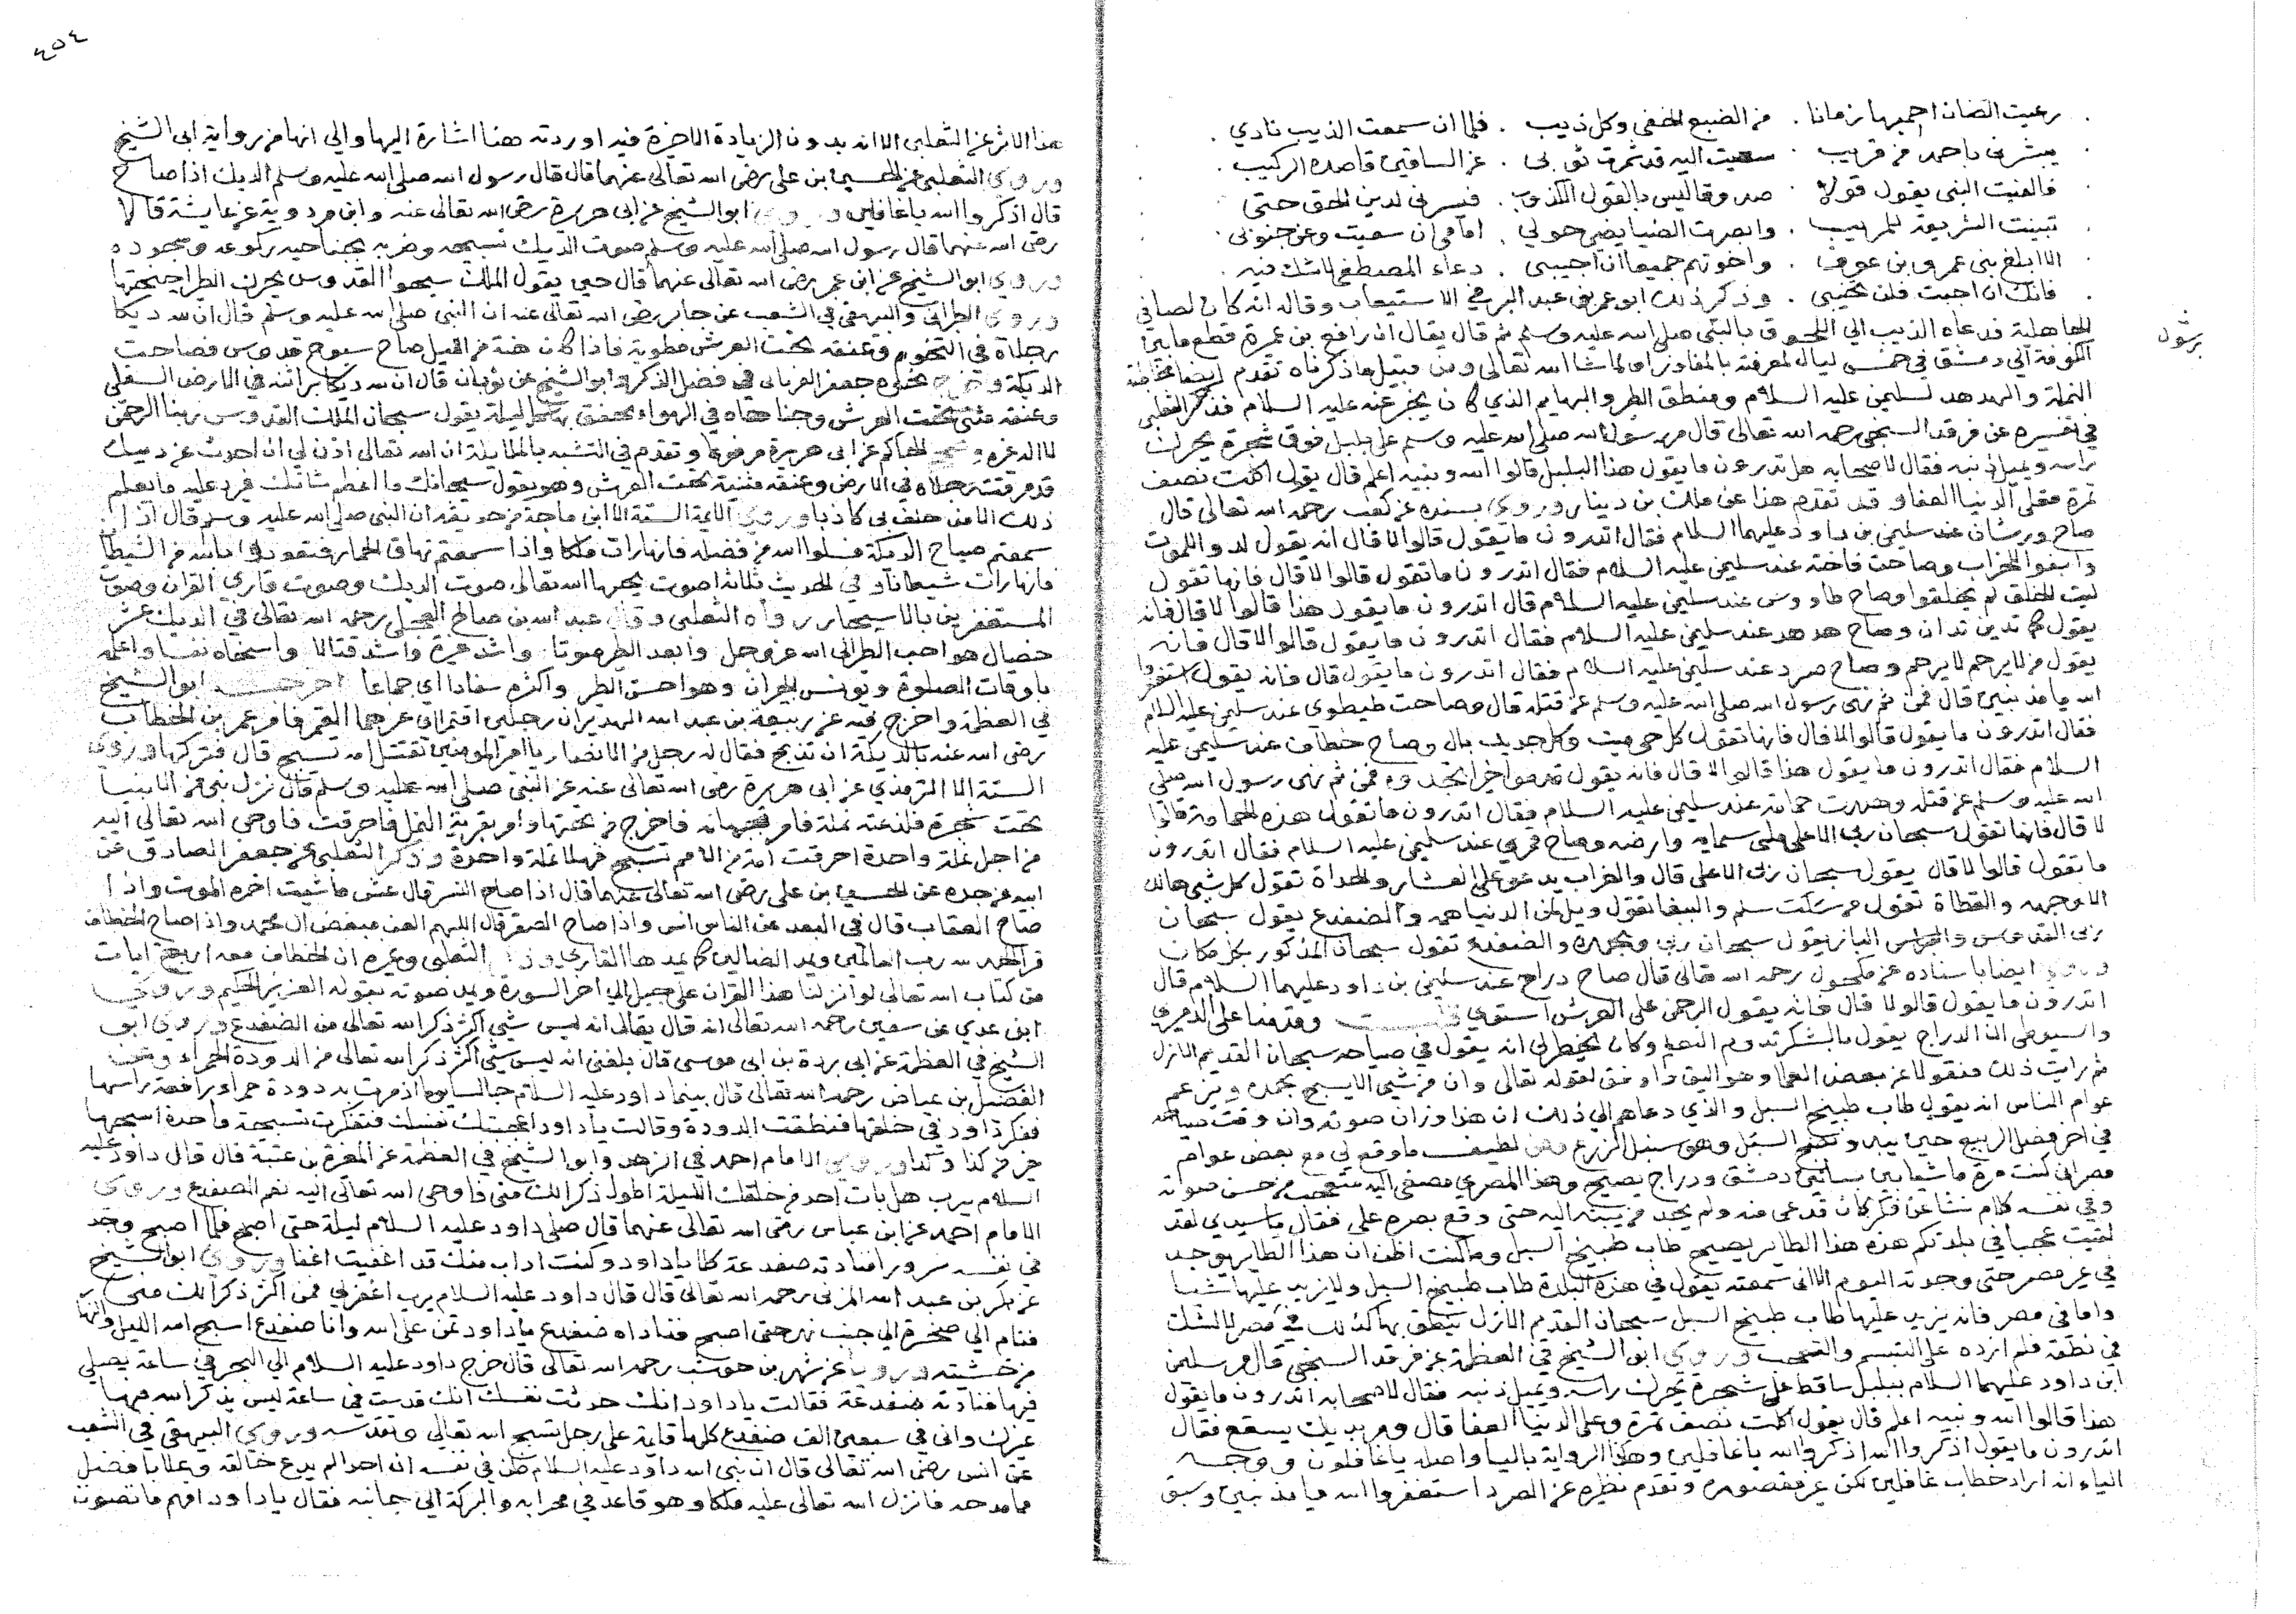 رعيت الضان احميها زمانا . من الضبع الخفي وكل ذيب . فلما ان سمعت الذيب نادي .
يبشرني باحمد من قريب . سعيت اليه قد شمرت ثوبي . عن الساقين قاصدة الركيب .
فالفيت النبي يقول قولا . صدوقا ليس بالقول الكذوب . فبشرني لدين الحق حتى
تبينت الشريعة للمريب . وابصرت الضيا يضي حولي . امامي ان سعيت وعن جنوبي .
الا ابلغ بني عمرو بن عوف . واخوتهم جميعا ان اجيبي . دعاء المصطفى لا شك فيه .
فانك ان اجبت فلن تخيبي . وذكر ذلك ابو عمر بن عبد البر في الاستيعاب وقال انه كان لصا في
الجاهلية فدعاه الذيب الي اللحوق بالنبي صلى الله عليه وسلم ثم قال يقال ان رافع بن عميرة قطع ما بين
الكوفة الي دمشق في خمس ليال لمعرفته بالمفاوز او لما شا الله تعالى ومن قبيل ما ذكرناه تقدم ايضا مخاطبة
النملة والهدهد لسليمن عليه السلام ومنطق الطير والبهايم الذي كان يخبر عنه عليه السلام فذكر الثعلبي
في تفسيره عن فرقد السبخي رحمه الله تعالى قال مر رسول الله صلى الله عليه وسلم على بلبل فوق شجرة يحرك
راسه ويميل ذنبه فقال لاصحابه هل تدرون ما يقول هذا البلبل قالوا الله ونبيه اعلم قال يقول اكلت نصف
تمرة فعلى الدنيا العفا وقد تقدم هذا عن ملك بن دينار وروي بسنده عن كعب رحمه الله تعالى قال
صاح ورشان عند سليمن بن داود عليهما السلام فقال اتدرون ما يقول قالوا لا قال انه يقول لدوا للموت
وابنوا للخراب وصاحت فاختة عند سليمن عليه السلام فقال اتدرون ما تقول قالوا لا قال فانها تقول
ليت الخلق لم يخلقوا وصاح طاووس عند سليمن عليه السلام قال اتدرون ما يقول هذا قالوا لا قال فانه
يقول كما تدين تدان وصاح هدهد عند سليمن عليه السلام فقال اتدرون ما يقول قالوا لا قال فانه
يقول من لا يرحم لا يرحم وصاح صرد عند سليمن عليه السلام فقال اتدرون ما يقول قال فانه يقول استغفروا
الله يا مذنبين قال فمن ثم نهى رسول الله صلى الله عليه وسلم عن قتله قال وصاحت طيطوى عند سليمن عليه السلام
فقال اتدرون ما يقول قالوا لا قال فانها تقول كل حي ميت وكل جديد بال وصاح خطاف عند سليمن عليه
السلام فقال اتدرون ما يقول هذا قالوا لا قال فانه يقول قدموا خيرا تجدوه فمن ثم نهى رسول الله صلى
الله عليه وسلم عن قتله وهدرت حمامة عند سليمن عليه السلام فقال اتدرون ما تقول هذه الحمامة قالوا
لا قال فانها تقول سبحان ربي الاعلى ملى سمايه وارضه وصاح قمري عند سليمن عليه السلام فقال اتدرون
ما تقول قالوا لا قال يقول سبحان ربي الاعلى قال والغراب يدعو على العشار والحداة تقول كل شي هالك
الا وجهه والقطاة تقول من سكت سلم والببغا تقول ويل لمن الدنيا همه والضفدع يقول سبحان
ربي القدوس والباز يقول سبحان ربي وبحمده والضفدعة تقول سبحان المذكور بكل مكان
وروي ايضا باسناده عن مكحول رحمه الله تعالى قال صاح دراج عند سليمن بن داود عليهما السلام قال
اتدرون ما يقول قالوا لا قال فانه يقول الرحمن على العرش استوى قلت وقدمنا على الدميري
والسيوطي ان الدراج يقول بالشكر تدوم النعم وكان يخطر لي انه يقول في صياحه سبحان القديم الازل
ثم رايت ذلك منقولا عن بعض العلما وهو اليق واوفق لقوله تعالى وان من شي الا يسبح بحمده وتزعم
عوام الناس انه يقول طاب طبيخ السبل والذي دعاهم الي ذلك ان هذا وزان صوته وان وقت صياحه
في اخر فصل الربيع حين يبدو السبل وهو سنبل الزرع ومن لطيف ما وقع لي مع بعض عوام
مصر اني كنت مرة ماشيا بين بساتين دمشق ودراج يصيح وهذا المصري مصغي اليه متعجب من حسن صوته
وفي نفسه كلام نشا عن فكر كان قد عمي عنه ولم يجد من يبثه اليه حتى وقع بصره علي فقال يا سيدي لقد
لقيت عجبا في بلدتكم هذه هذا الطاير يصيح طاب طبيخ السبل وما كنت اظن ان هذا الطاير يوجد
في غير مصر حتى وجدته اليوم الا اني سمعته يقول في هذه البلدة طاب طبيخ السبل ولا يزيد عليها شيا
واما في مصر فانه يزيد عليها طاب طبيخ السبل سبحان القديم الازل ينطق بها كذلك في مصر لا شك
في نطقه فلم ازده على التبسم والتعجب وروي ابو الشيخ في العظمة عن فرقد السبخي قال مر سليمن
ابن داود عليهما السلام ببلبل ساقط على شجرة يحرك راسه ويميل ذنبه فقال لاصحابه اتدرون ما يقول
هذا قالوا الله ونبيه اعلم قال يقول اكلت نصف تمرة وعلى الدنيا العفا قال ومر بديك يسقع فقال
اتدرون ما يقول اذكروا الله اذكروا الله يا غافلين وهذا الرواية باليا واصله يا غافلون ووجه
الياء انه اراد خطاب غافلين لكن غير مقصودين وتقدم نظيره عن الصرد استغفروا الله يا مذنبين وسبق
برشول
٤٥٤
هذا الاثر عن الثعلبي الا انه بدون الزيادة الاخرة فيه اوردته هنا اشارة اليها والي انها من رواية ابي الشيخ
وروى الثعلبي عن الحسين بن علي رضي الله تعالى عنهما قال قال رسول الله صلى الله عليه وسلم الديك اذا صاح
قال اذكروا الله يا غافلين وروى ابو الشيخ عن ابي هريرة رضي الله تعالى عنه وابن مردوية عن عايشة قالا
رضي الله عنهما قال رسول الله صلى الله عليه وسلم صوت الديك تسبيحه وضربه بجناحيه ركوعه وسجوده
وروي ابو الشيخ عن ابن عمر رضي الله تعالى عنهما قال حين يقول الملك سبحوا القدوس يحركن الطير اجنحتها
وروى الطبراني والبيهقي في الشعب عن جابر رضي الله تعالى عنه ان النبي صلى الله عليه وسلم قال ان لله ديكا
رجلاه في التخوم وعنقه تحت العرش مطوية فاذا كان هنة من الليل صاح سبوح قدوس فصاحت
الديكة واخرج جعفر الفريابي في فضل الذكر وابو الشيخ عن ثوبان قال ان لله ديكا براثنه في الارض السفلى
وعنقه مثني تحت العرش وجناحاه في الهواء يخفق بهما كل ليلة يقول سبحان الملك القدوس ربنا الرحمن
لا اله غيره وصحح الحاكم عن ابي هريرة مرفوعا وتقدم في التشبه بالملايكة ان الله تعالى اذن لي ان احدث عن ديك
قد مرقت رجلاه في الارض وعنقه مثنية تحت العرش وهو يقول سبحانك ما اعظم شانك فيرد عليه ما يعلم
ذلك الا من حلف بي كاذبا وروى الايمة الستة الا ابن ماجة من حديثه ان النبي صلى الله عليه وسلم قال اذا
سمعتم صياح الديكة فسلوا الله من فضله فانها رات ملكا واذا سمعتم نهاق الحمار فتعوذوا بالله من الشيطان
فانها رات شيطانا وفي الحديث ثلاثة اصوت يحبها الله تعالى صوت الديك وصوت قاري القران وصوت
المستغفرين بالاسحار رواه الثعلبي وقال عبد الله بن صالح العجلي رحمه الله تعالى في الديك عشر
خصال هو احب الطير الى الله عز وجل وابعد الطير صوتا واشد غيرة واشد قتالا واسخاه نفسا واعلمه
باوقات الصلوة ويونس الجيران وهو احسن الطير واكثره سفادا اي جماعا اخرجه ابو الشيخ
في العظمة واخرج فيه عن ربيعة بن عبد الله الهدير ان رجلين اقترا الي عرجما القمر فامر عمر بن الخطاب
رضي الله عنه بالديكة ان تذبح فقال له رجل من الانصار يا امير المومنين تقتل امة تسبح قال فتركها وروى
الستة الا الترمذي عن ابي هريرة رضي الله تعالى عنه عن النبي صلى الله عليه وسلم قال نزل نبي من الانبيا
تحت شجرة فلدغته نملة فامر بجهازه فاخرج من تحتها وامر بقرية النمل فاحرقت فاوحى الله تعالى اليه
من اجل نملة واحدة احرقت امة من الامم تسبح فهلا نملة واحدة وذكر الثعلبي عن جعفر الصادق عن
ابيه عن جده عن الحسين بن علي رضي الله تعالى عنهما قال اذا صاح النسر قال عش ما شيت اخره الموت واذا
صاح العقاب قال في البعد عن الناس انس واذا صاح الصقر قال اللهم العن مبغض ال محمد واذا صاح الخطاف
قرا الحمد لله رب العالمين ويمد الضالين كما يمدها القاري وزاد الثعلبي وغيره ان الخطاف معه اربع ايات
من كتاب الله تعالى لو انزلنا هذا القران على جبل الي اخر السورة ويمد صوته بقوله العزيز الحكيم وروى
ابن عدي عن سفين رحمه الله تعالى انه قال يقال انه ليس شي اكثر ذكرا لله تعالى من الضفدع وروى ابو
الشيخ في العظمة عن ابي بردة بن ابي موسى قال بلغني انه ليس شي اكثر ذكرا لله تعالى من الدودة الحمراء وعن
الفضيل بن عياض رحمه الله تعالى قال بينما داود عليه السلام جالسا يوما اذ مرت به دودة حمراء رافعة راسها
ففكر داود في خلقها فنطقت الدودة وقالت يا داود اعجبتك نفسك فتفكرت تسبيحة واحدة اسبحها
خير من كذا وكذا وروى الامام احمد في الزهد وابو الشيخ في العظمة عن المغيرة بن عتيبة قال قال داود عليه
السلام يرب هل بات احد من خلقك الليلة اطول ذكرا لك مني فاوحى الله تعالى اليه نعم الضفدع وروى
الامام احمد عن ابن عباس رضي الله تعالى عنهما قال صلى داود عليه السلام ليلة حتى اصبح فلما اصبح وجد
في نفسه سرورا فنادته ضفدعة كلا يا داود كنت اداب منك قد اغفيت اغفا وروى ابو الشيخ
عن بكر بن عبد الله المزني رحمه الله تعالى قال قال داود عليه السلام يرب اغفر لي فمن اكثر ذكرا لك مني
فنام الي صخرة الي جنب نهر حتى اصبح فناداه ضفدع يا داود تمن على الله وانا ضفدع اسبح الله الليل والنهار
من خشيته وروى عن شهر بن حوشب رحمه الله تعالى قال خرج داود عليه السلام الي البحر في ساعة يصلي
فيها فنادته ضفدعة فقالت يا داود انك حدثت نفسك انك قدست في ساعة ليس يذكر الله فيها
غيرك واني في سبعين الف ضفدع كلها قايمة على رجل تسبح الله تعالى وتقدسه وروى البيهقي في الشعب
عن انس رضي الله تعالى قال ان نبي الله داود عليه السلام ظن في نفسه ان احدا لم يدع خالقه وبجلايا فضل
مما مدحه فانزل الله تعالى عليه ملكا وهو قاعد في محرابه والبركة الي جانبه فقال يا داود افهم ما تصوت